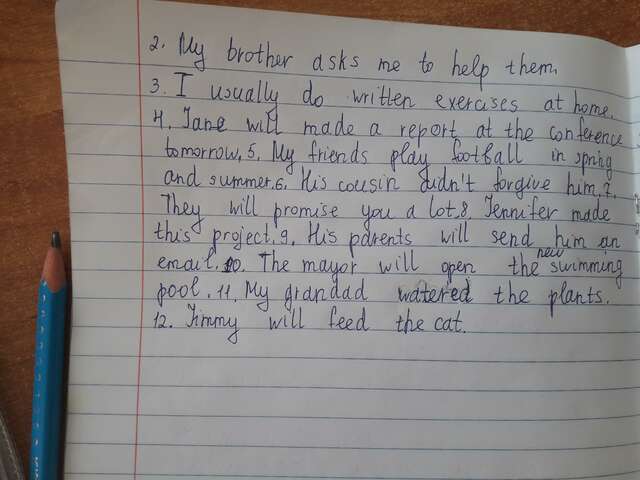 2. My brother asks me to help them.
3. I usually do written exercises at home.
4. Jane will made a report at the conference
tomorrow. 5. My friends play football in spring
and summer. 6. His cousin didn't forgive him. 7.
They will promise you a lot. 8. Jennifer made
this project. 9. His parents will send him an
email. 10. The mayor will open the new swimming
pool. 11. My grandad watered the plants.
12. Jimmy will feed the cat.